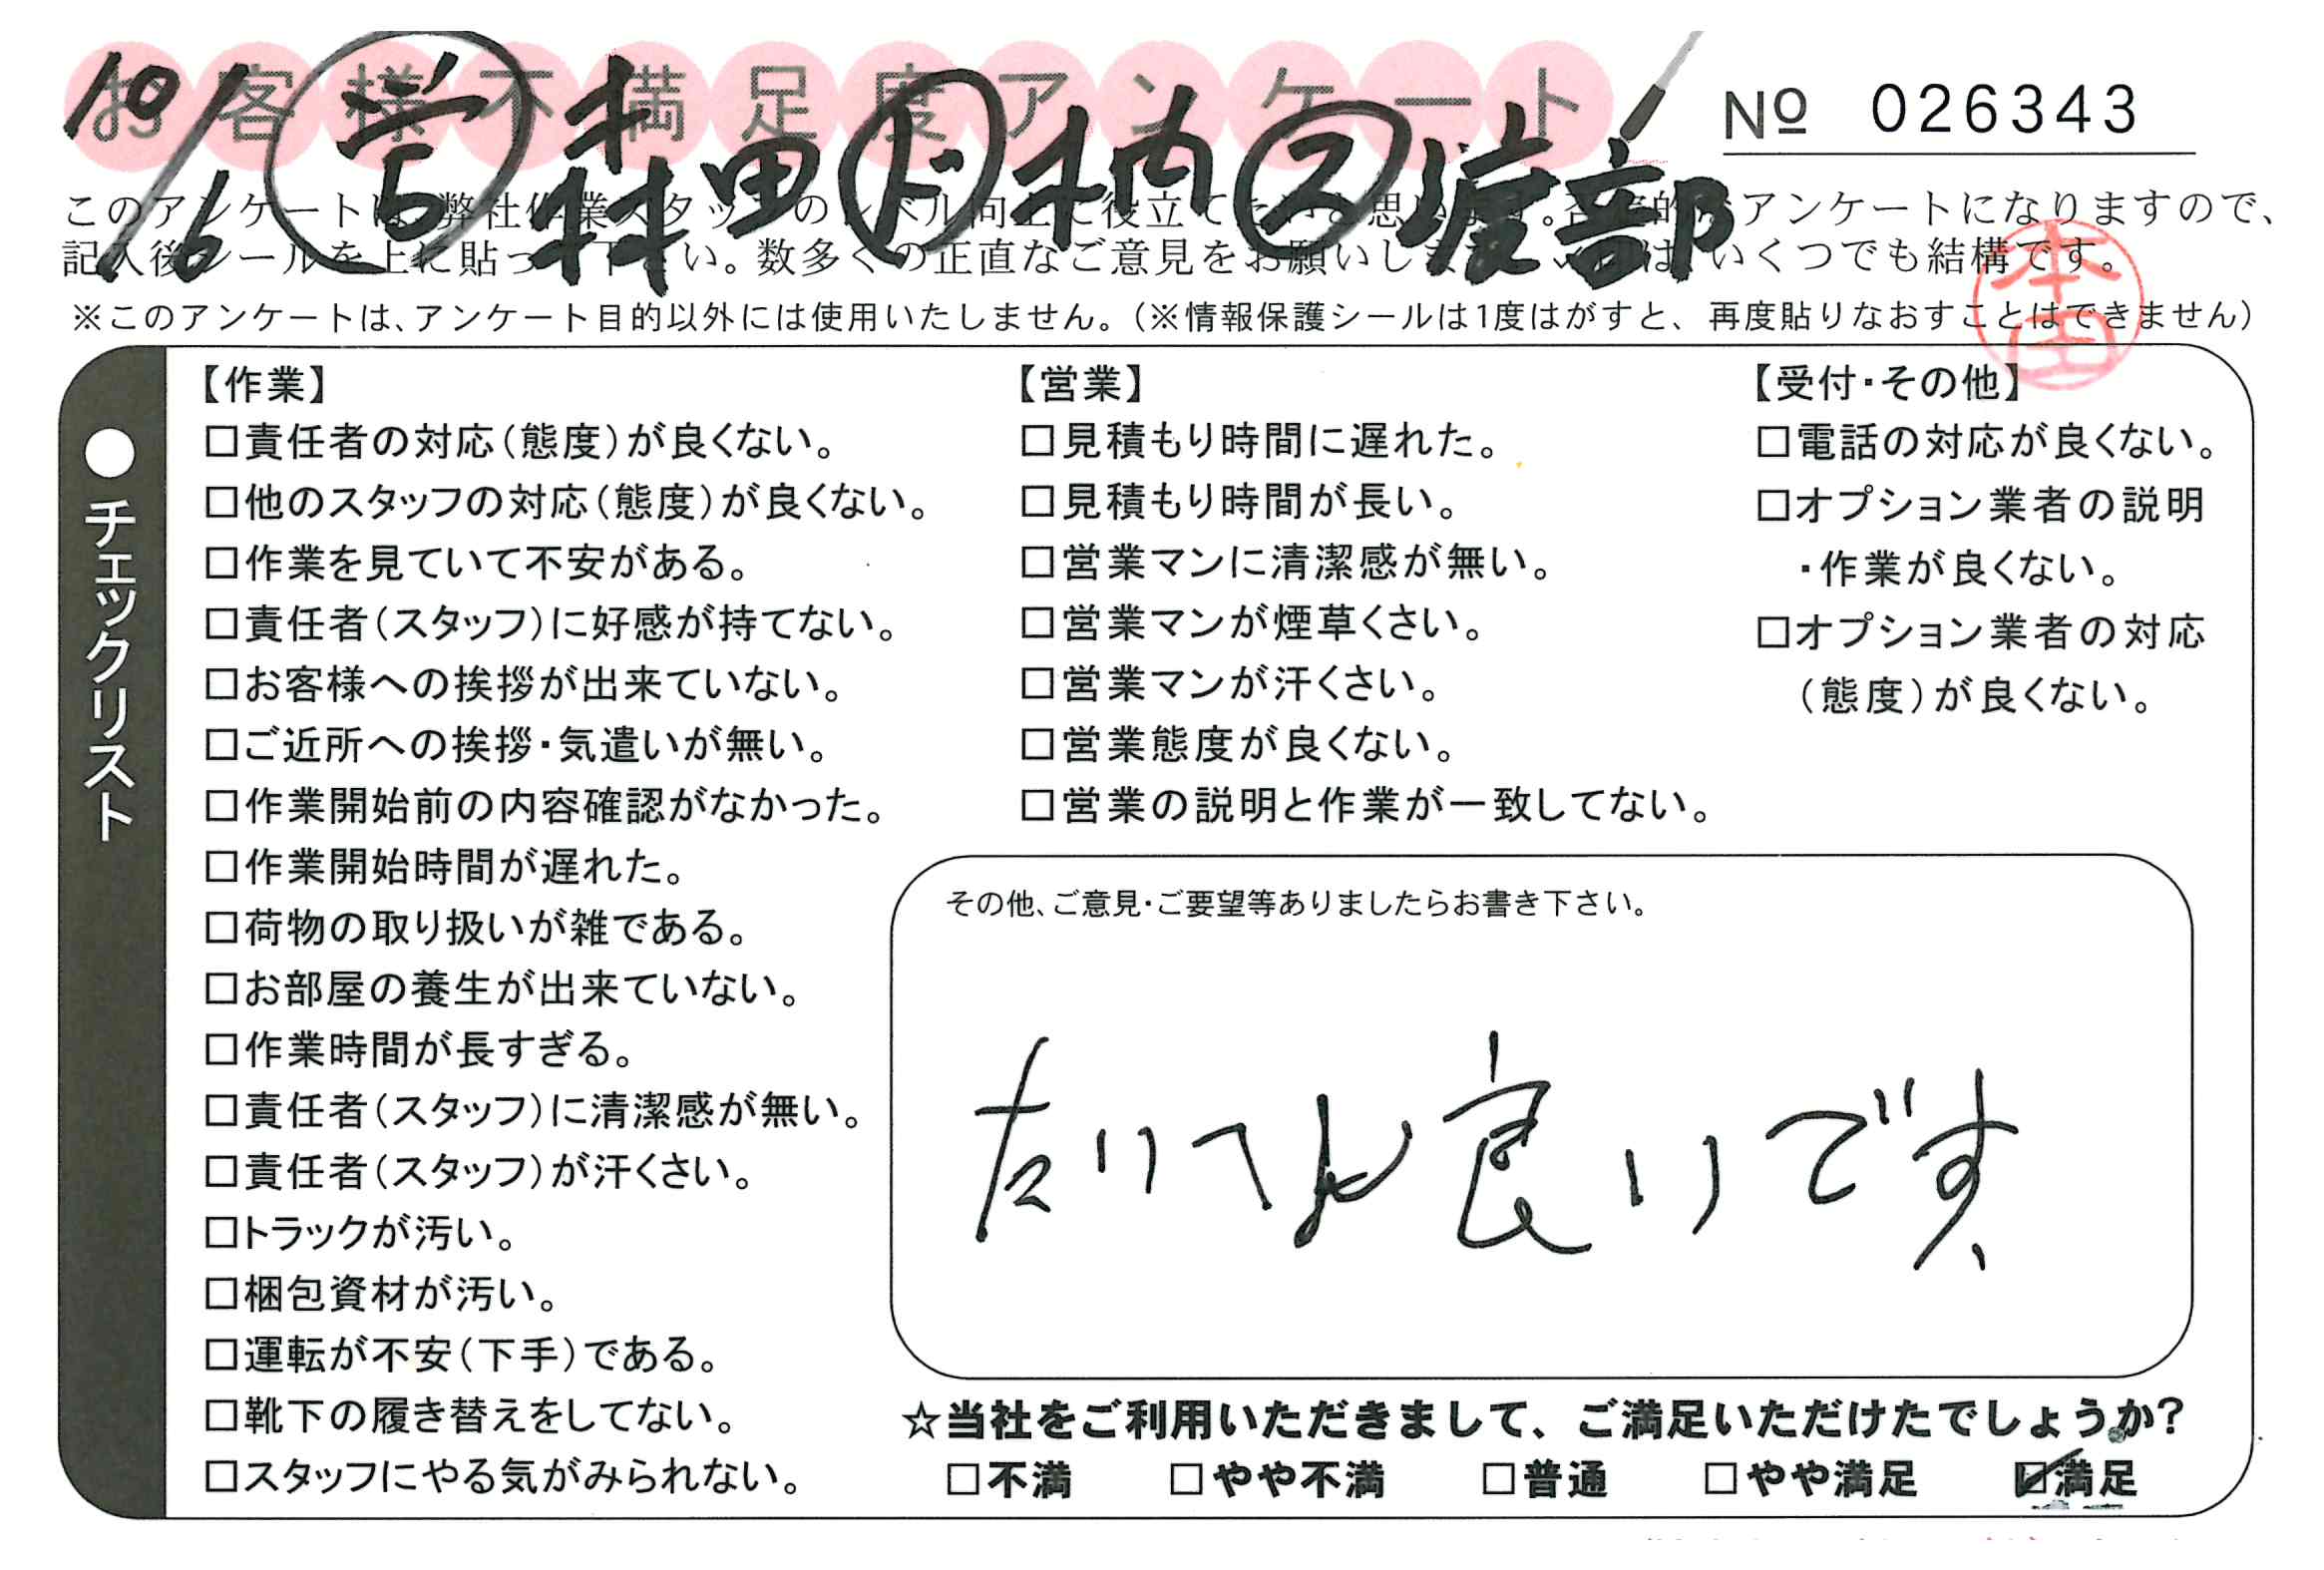 お客様不満足度アンケート
№ 026343
10/6 営 森田 ド 柄 2 渡部
このアンケートは、弊社作業スタッフのレベル向上に役立てたいと思います。否定的なアンケートになりますので、
記入後シールを上に貼って下さい。数多くの正直なご意見をお願いします。いくつでも結構です。
※このアンケートは、アンケート目的以外には使用いたしません。(※情報保護シールは1度はがすと、再度貼りなおすことはできません)
本田
●チェックリスト
【作業】
□責任者の対応(態度)が良くない。
□他のスタッフの対応(態度)が良くない。
□作業を見ていて不安がある。
□責任者(スタッフ)に好感が持てない。
□お客様への挨拶が出来ていない。
□ご近所への挨拶・気遣いが無い。
□作業開始前の内容確認がなかった。
□作業開始時間が遅れた。
□荷物の取り扱いが雑である。
□お部屋の養生が出来ていない。
□作業時間が長すぎる。
□責任者(スタッフ)に清潔感が無い。
□責任者(スタッフ)が汗くさい。
□トラックが汚い。
□梱包資材が汚い。
□運転が不安(下手)である。
□靴下の履き替えをしてない。
□スタッフにやる気がみられない。
【営業】
□見積もり時間に遅れた。
□見積もり時間が長い。
□営業マンに清潔感が無い。
□営業マンが煙草くさい。
□営業マンが汗くさい。
□営業態度が良くない。
□営業の説明と作業が一致してない。
【受付・その他】
□電話の対応が良くない。
□オプション業者の説明
・作業が良くない。
□オプション業者の対応
(態度)が良くない。
その他、ご意見・ご要望等ありましたらお書き下さい。
たいへん良いです、
☆当社をご利用いただきまして、ご満足いただけたでしょうか?
□不満 □やや不満 □普通 □やや満足 ☑満足